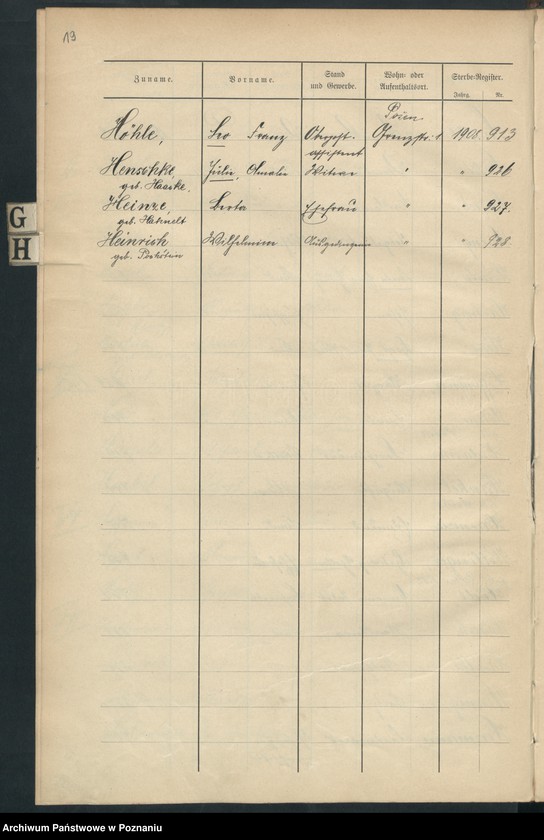 19
Zuname. Vorname. Stand und Gewerbe. Wohn- oder Aufenthaltsort. Sterbe-Register.
Jahrg. Nr.
Posen
Höhle, Leo Franz Oberpost- Grenzstr. 1 1901 913
assistent
Henschke, Julie, Amalie Witwe " " 926
geb. Haacke.
Heinze, Berta Ehefrau " 927.
geb.
Heinrich Wilhelmine " " 928
geb.
G
H
Archiwum Państwowe w Poznaniu